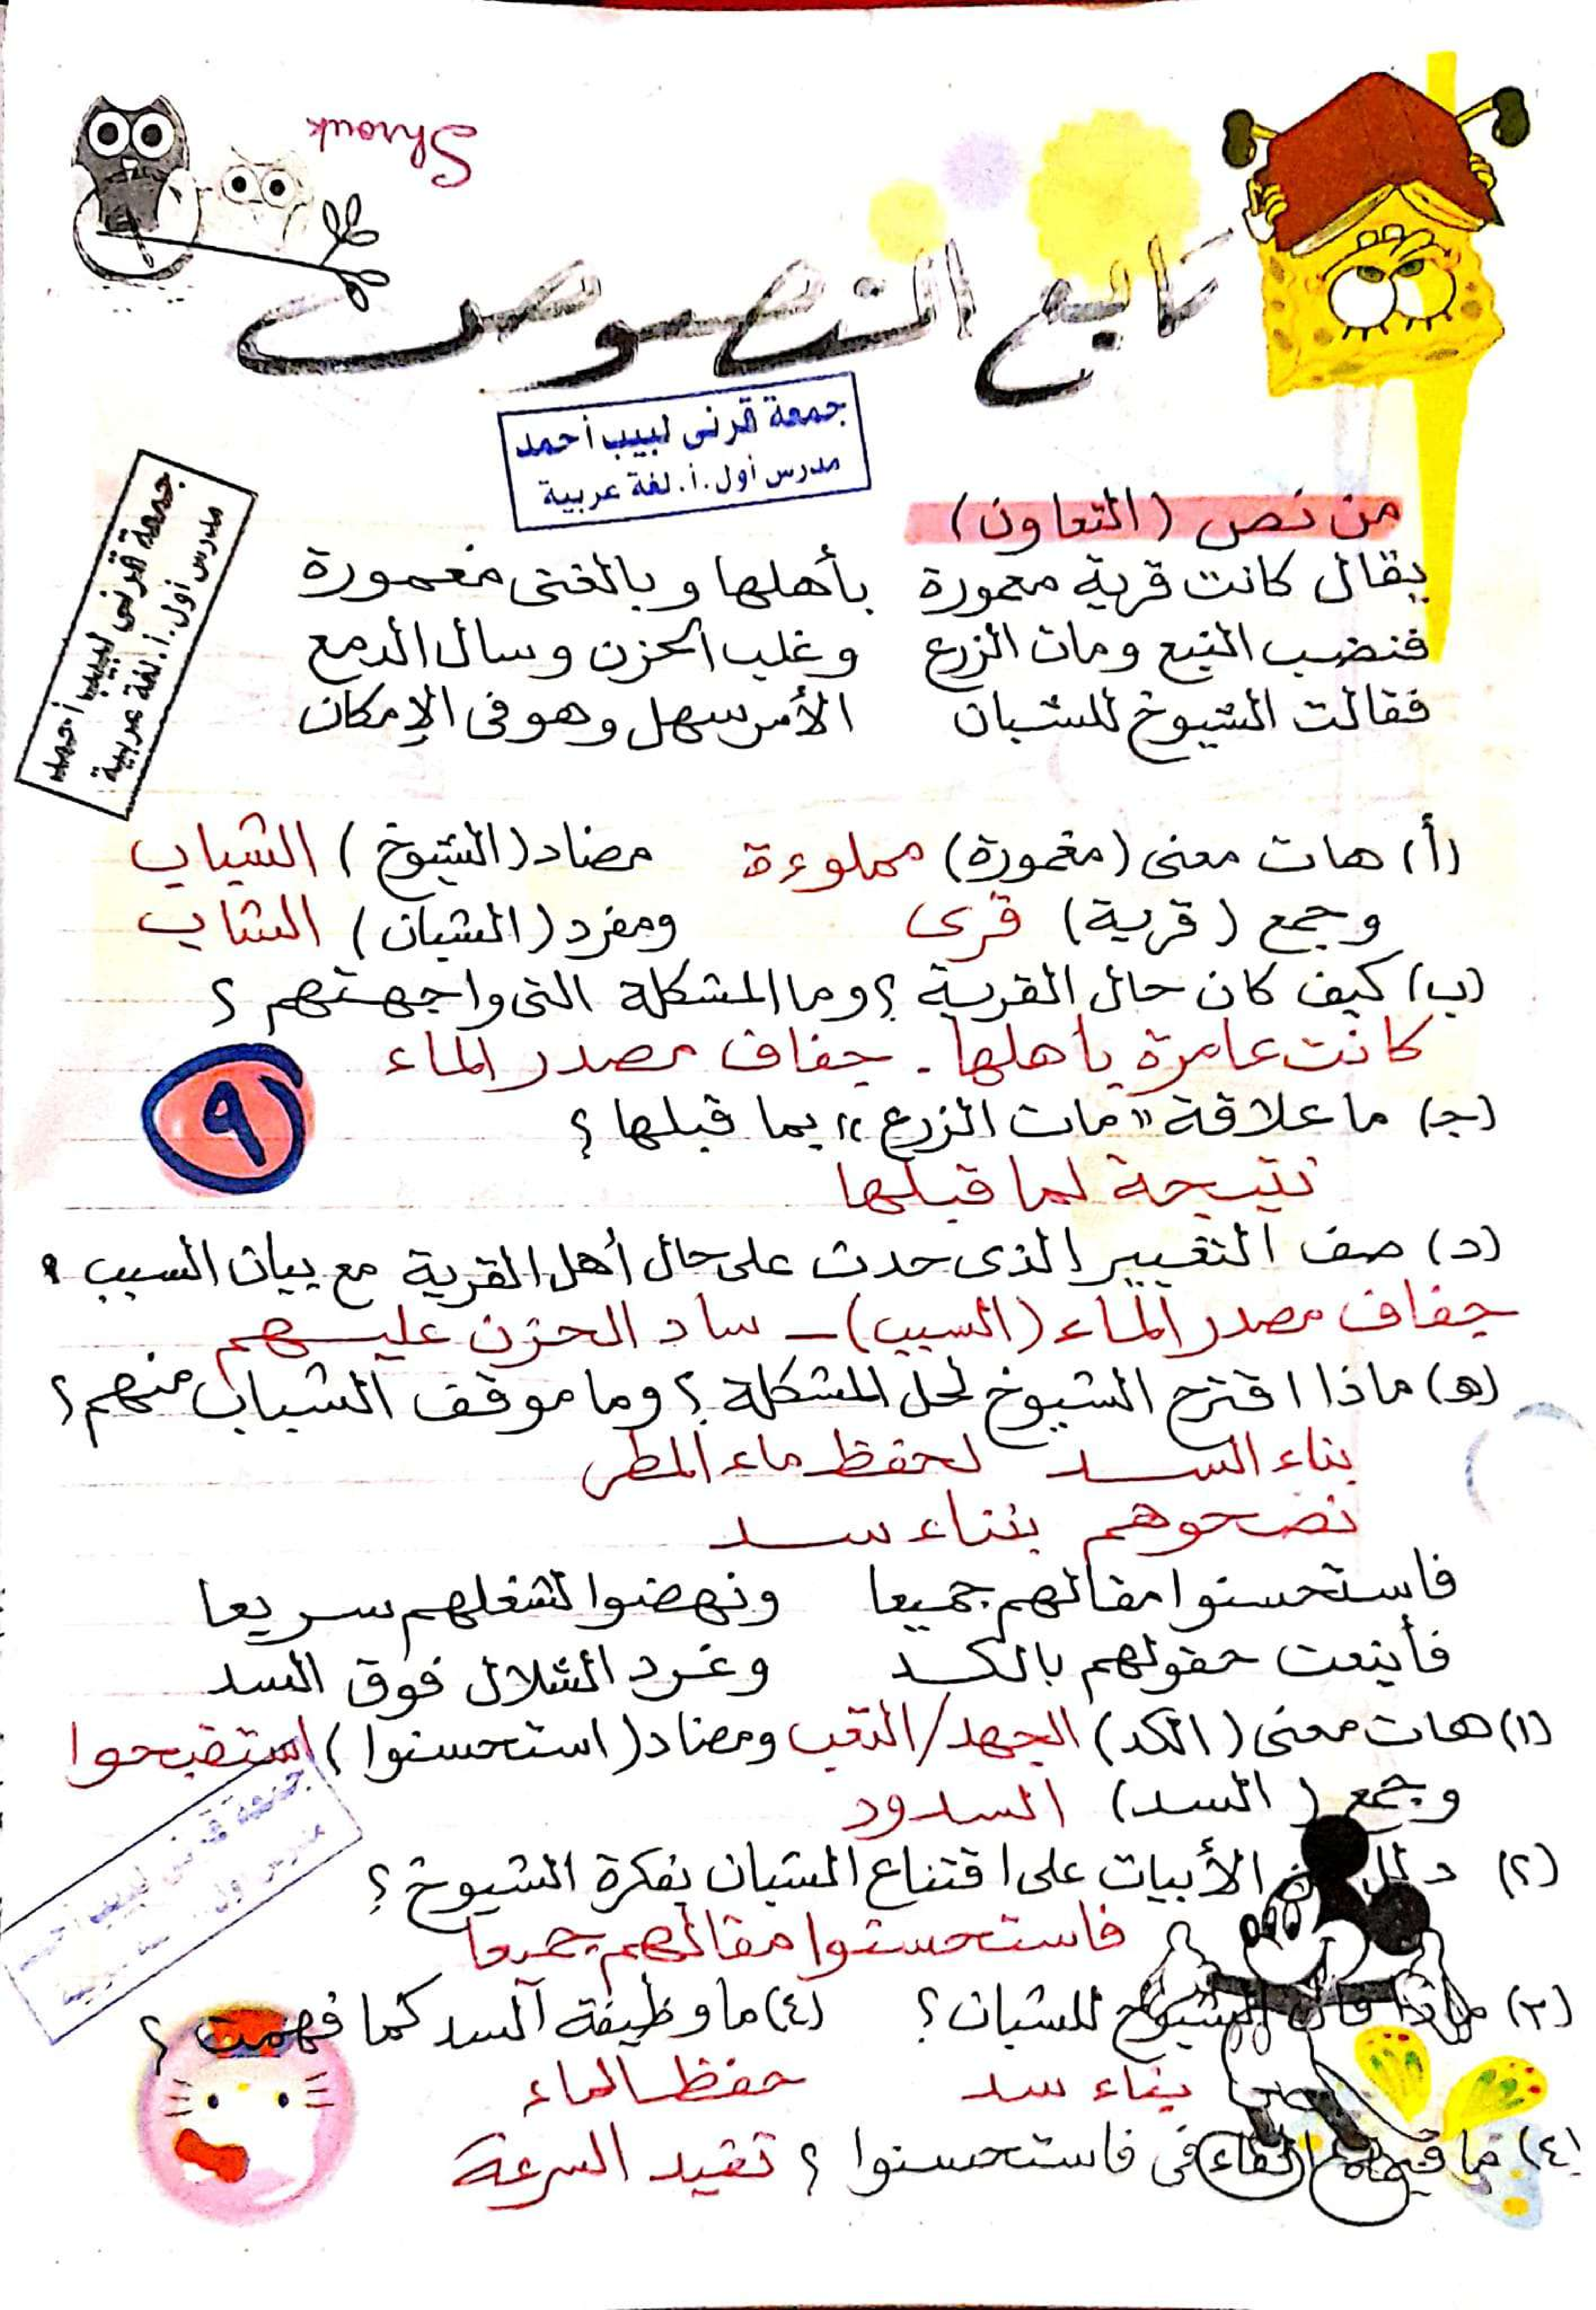 Shrouk
تابع النصوص
جمعة قرنى لبيب أحمد
مدرس أول.أ.لغة عربية
جمعة قرنى لبيب أحمد
مدرس أول.أ.لغة عربية
من نص (التعاون)
يقال كانت قرية معمورة بأهلها وبالغنى مغمورة
فنضب النبع ومات الزرع وغلب الحزن وسال الدمع
فقالت الشيوخ للشبان الأمر سهل وهو فى الإمكان
(أ) هات معنى (مغمورة) مملوءة مضاد (الشيوخ) الشباب
وجمع (قرية) قرى ومفرد (الشبان) الشاب
(ب) كيف كان حال القرية ؟ وما المشكلة التى واجهتهم ؟
كانت عامرة بأهلها. جفاف مصدر الماء
٩
(جـ) ما علاقة "مات الزرع" بما قبلها ؟
نتيجة لما قبلها
(د) صف التغيير الذى حدث على حال أهل القرية مع بيان السبب ؟
جفاف مصدر الماء (السبب) ـ ساد الحزن عليهم
(هـ) ماذا اقترح الشيوخ لحل المشكلة ؟ وما موقف الشباب منهم ؟
بناء السد لحفظ ماء المطر
نصحوهم ببناء سد
فاستحسنوا مقالهم جميعا ونهضوا لشغلهم سريعا
فأينعت حقولهم بالكد وغرد الشلال فوق السد
(١) هات معنى (الكد) الجهد/التعب ومضاد (استحسنوا) استقبحوا
وجمع (السد) السدود
جمعة قرنى لبيب أحمد
(٢) دلل من الأبيات على اقتناع الشبان بفكرة الشيوخ ؟
فاستحسنوا مقالهم جميعا
(٣) ماذا قال الشيوخ للشبان ؟ (٤) ما وظيفة السد كما فهمت ؟
بناء سد حفظ الماء
(٤) ما قيمة الفاء فى فاستحسنوا ؟ تفيد السرعة